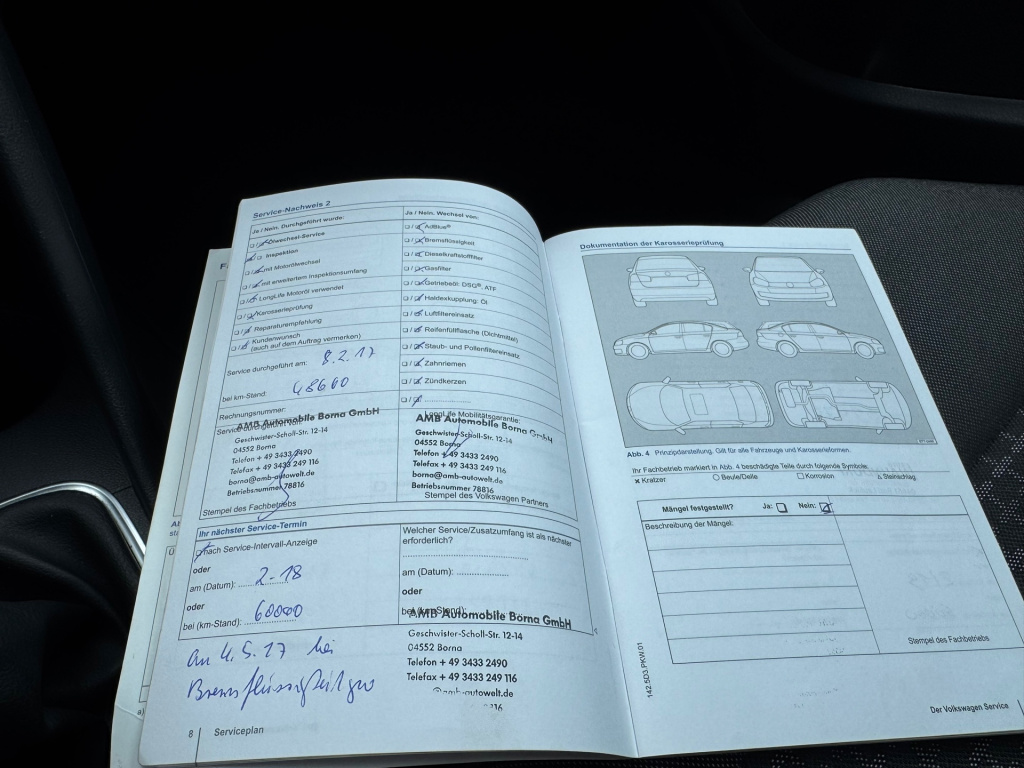 Service-Nachweis 2
Ja / Nein. Durchgeführt wurde:
Ölwechsel-Service
Inspektion
mit Motorölwechsel
mit erweitertem Inspektionsumfang
LongLife Motoröl verwendet
Karosserieprüfung
Reparaturempfehlung
Kundenwunsch
(auch auf dem Auftrag vermerken)
Service durchgeführt am: 8.2.17
bei km-Stand: 48600
Rechnungsnummer:
Service durchgeführt von:
AMB Automobile Borna GmbH
Geschwister-Scholl-Str. 12-14
04552 Borna
Telefon + 49 3433 2490
Telefax + 49 3433 249 116
borna@amb-autowelt.de
Betriebsnummer 78816
Stempel des Fachbetriebs
Ja / Nein. Wechsel von:
AdBlue®
Bremsflüssigkeit
Dieselkraftstofffilter
Gasfilter
Getriebeöl: DSG®, ATF
Haldexkupplung: Öl
Luftfiltereinsatz
Reifenfüllflasche (Dichtmittel)
Staub- und Pollenfiltereinsatz
Zahnriemen
Zündkerzen
LongLife Mobilitätsgarantie:
AMB Automobile Borna GmbH
Geschwister-Scholl-Str. 12-14
04552 Borna
Telefon + 49 3433 2490
Telefax + 49 3433 249 116
borna@amb-autowelt.de
Betriebsnummer 78816
Stempel des Volkswagen Partners
Ihr nächster Service-Termin
nach Service-Intervall-Anzeige
oder
am (Datum): 2-18
oder
bei (km-Stand): 60000
Welcher Service/Zusatzumfang ist als nächster
erforderlich?
am (Datum):
oder
bei (km-Stand):
AMB Automobile Borna GmbH
Geschwister-Scholl-Str. 12-14
04552 Borna
Telefon + 49 3433 2490
Telefax + 49 3433 249 116
@amb-autowelt.de
an 4.5.17 bei
8 Serviceplan
Dokumentation der Karosserieprüfung
Abb. 4 Prinzipdarstellung. Gilt für alle Fahrzeuge und Karosserieformen.
Ihr Fachbetrieb markiert in Abb. 4 beschädigte Teile durch folgende Symbole:
x Kratzer ○ Beule/Delle □ Korrosion △ Steinschlag
Mängel festgestellt? Ja: Nein:
Beschreibung der Mängel:
Stempel des Fachbetriebs
142.5D3.PKW.01
Der Volkswagen Service